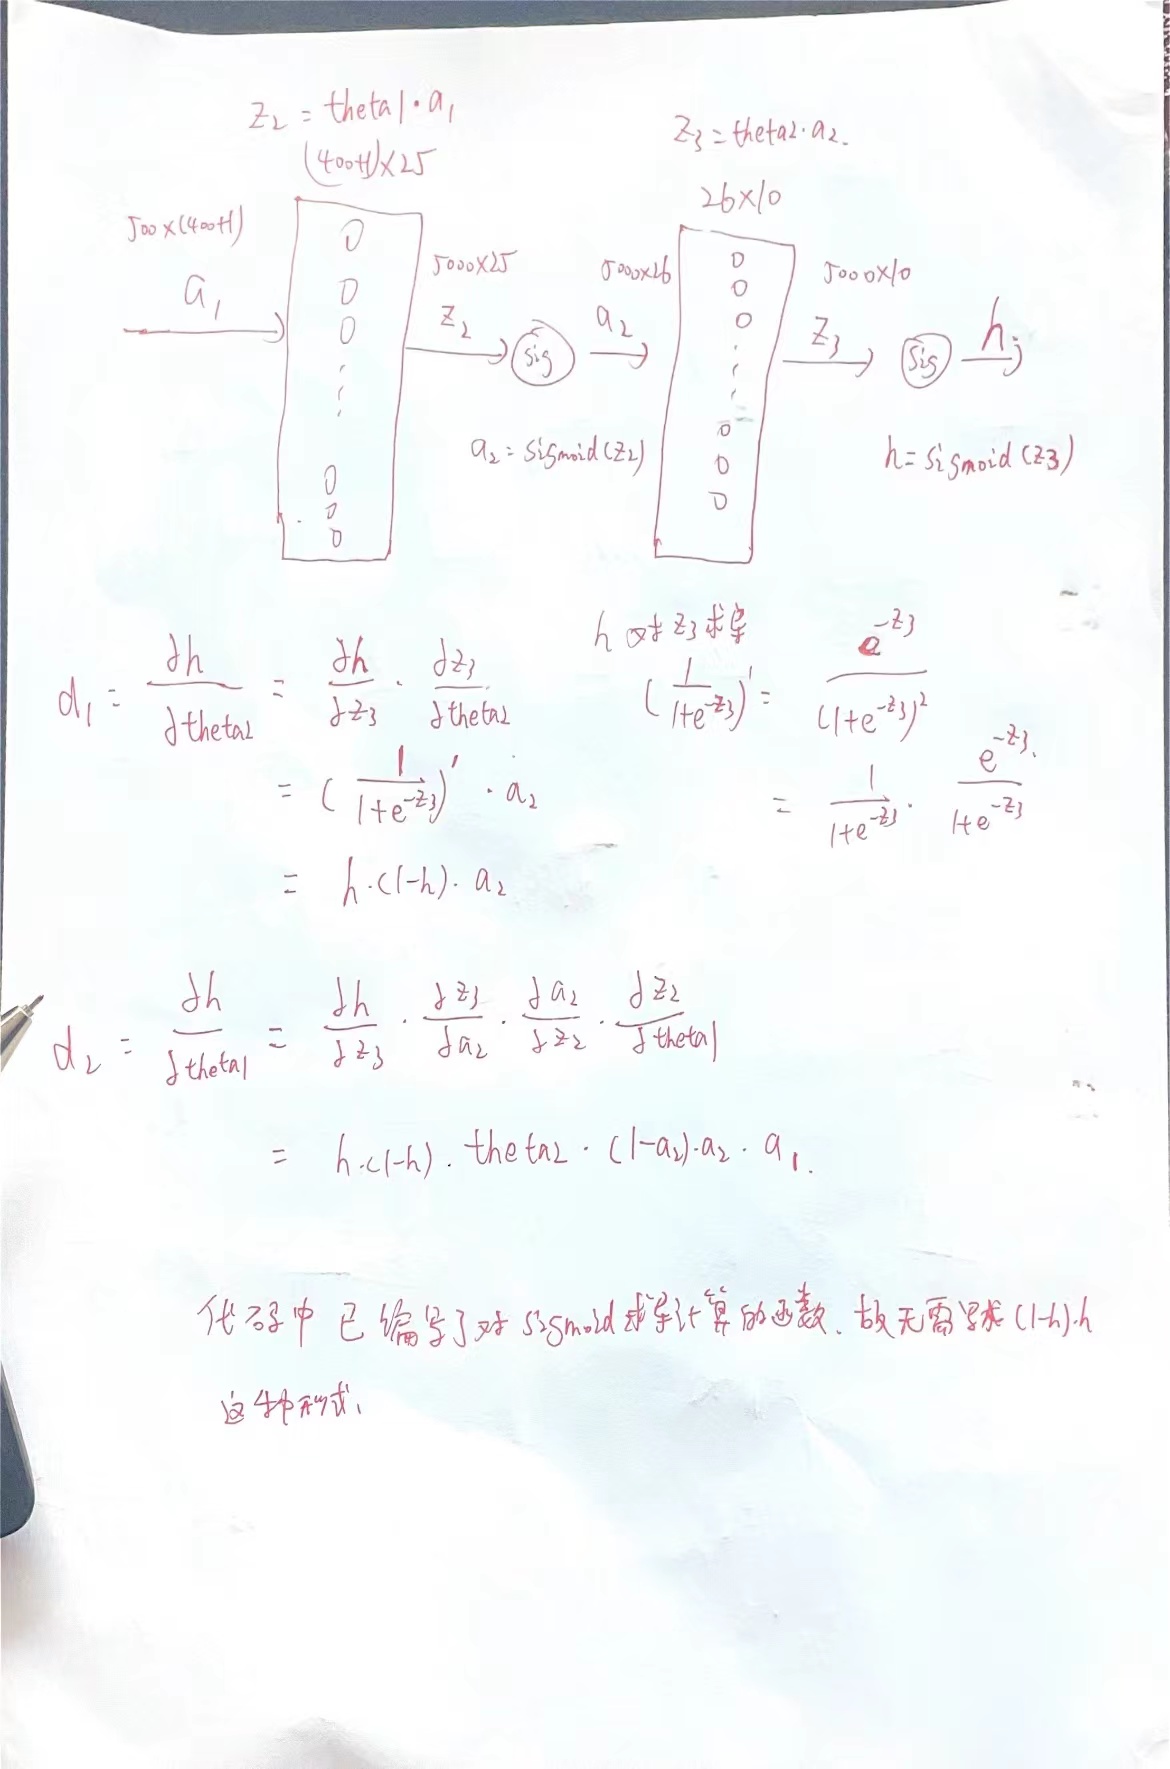 z₂ = theta1·a₁
(400+1)×25
z₃ = theta2·a₂.
26×10
500×(400+1)
a₁
5000×25
z₂
sig
5000×26
a₂
5000×10
z₃
sig
hj
a₂ = sigmoid(z₂)
h = sigmoid(z3)
d₁ = ∂h/∂theta2 = ∂h/∂z₃ · ∂z₃/∂theta2
= (1/(1+e^-z3))' · a₂
= h·(1-h)·a₂
h 对 z₃ 求导
(1/(1+e^-z3))' = e^-z3/(1+e^-z3)²
= 1/(1+e^-z3) · e^-z3/(1+e^-z3)
d₂ = ∂h/∂theta1 = ∂h/∂z₃ · ∂z₃/∂a₂ · ∂a₂/∂z₂ · ∂z₂/∂theta1
= h·(1-h)·theta2·(1-a₂)·a₂·a₁.
代码中已编写了对sigmoid求导计算的函数. 故无需写成(1-h)·h
这种形式.